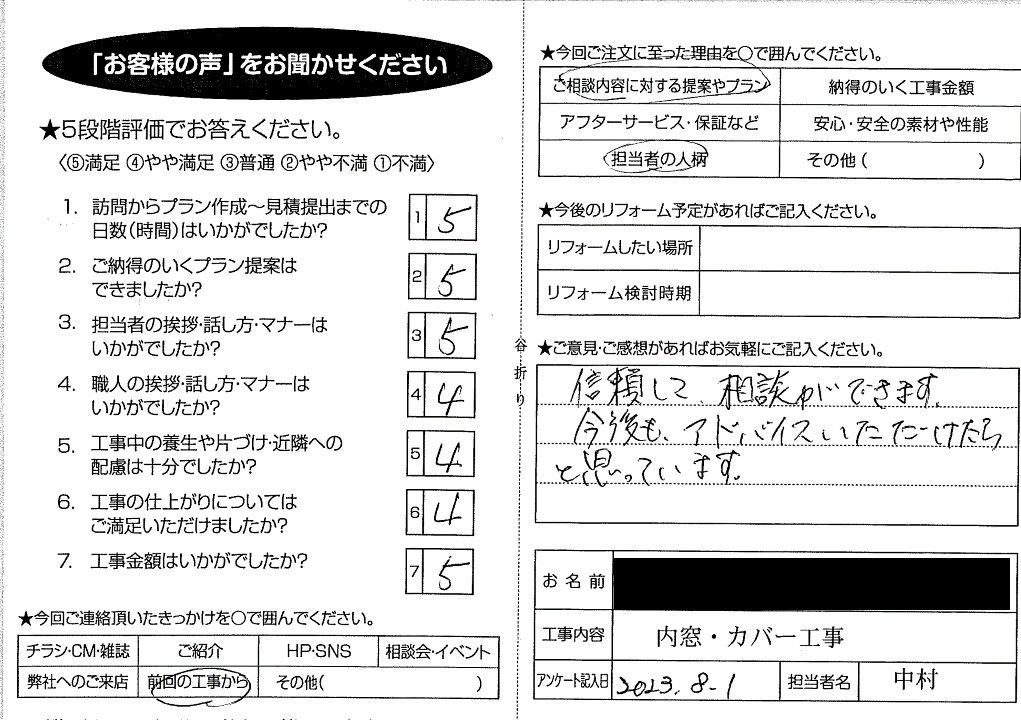 「お客様の声」をお聞かせください
★5段階評価でお答えください。
〈⑤満足 ④やや満足 ③普通 ②やや不満 ①不満〉
1. 訪問からプラン作成～見積提出までの
日数(時間)はいかがでしたか?
1 5
2. ご納得のいくプラン提案は
できましたか?
2 5
3. 担当者の挨拶・話し方・マナーは
いかがでしたか?
3 5
4. 職人の挨拶・話し方・マナーは
いかがでしたか?
4 4
5. 工事中の養生や片づけ・近隣への
配慮は十分でしたか?
5 4
6. 工事の仕上がりについては
ご満足いただけましたか?
6 4
7. 工事金額はいかがでしたか?
7 5
★今回ご連絡頂いたきっかけを○で囲んでください。
チラシ・CM・雑誌 ご紹介 HP・SNS 相談会・イベント
弊社へのご来店 前回の工事から その他( )
谷折り
★今回ご注文に至った理由を○で囲んでください。
ご相談内容に対する提案やプラン 納得のいく工事金額
アフターサービス・保証など 安心・安全の素材や性能
担当者の人柄 その他( )
★今後のリフォーム予定があればご記入ください。
リフォームしたい場所
リフォーム検討時期
★ご意見・ご感想があればお気軽にご記入ください。
信頼して、相談ができます。
今後も、アドバイスいただけたら
と思っています。
お名前
工事内容 内窓・カバー工事
アンケート記入日 2023.8-1 担当者名 中村